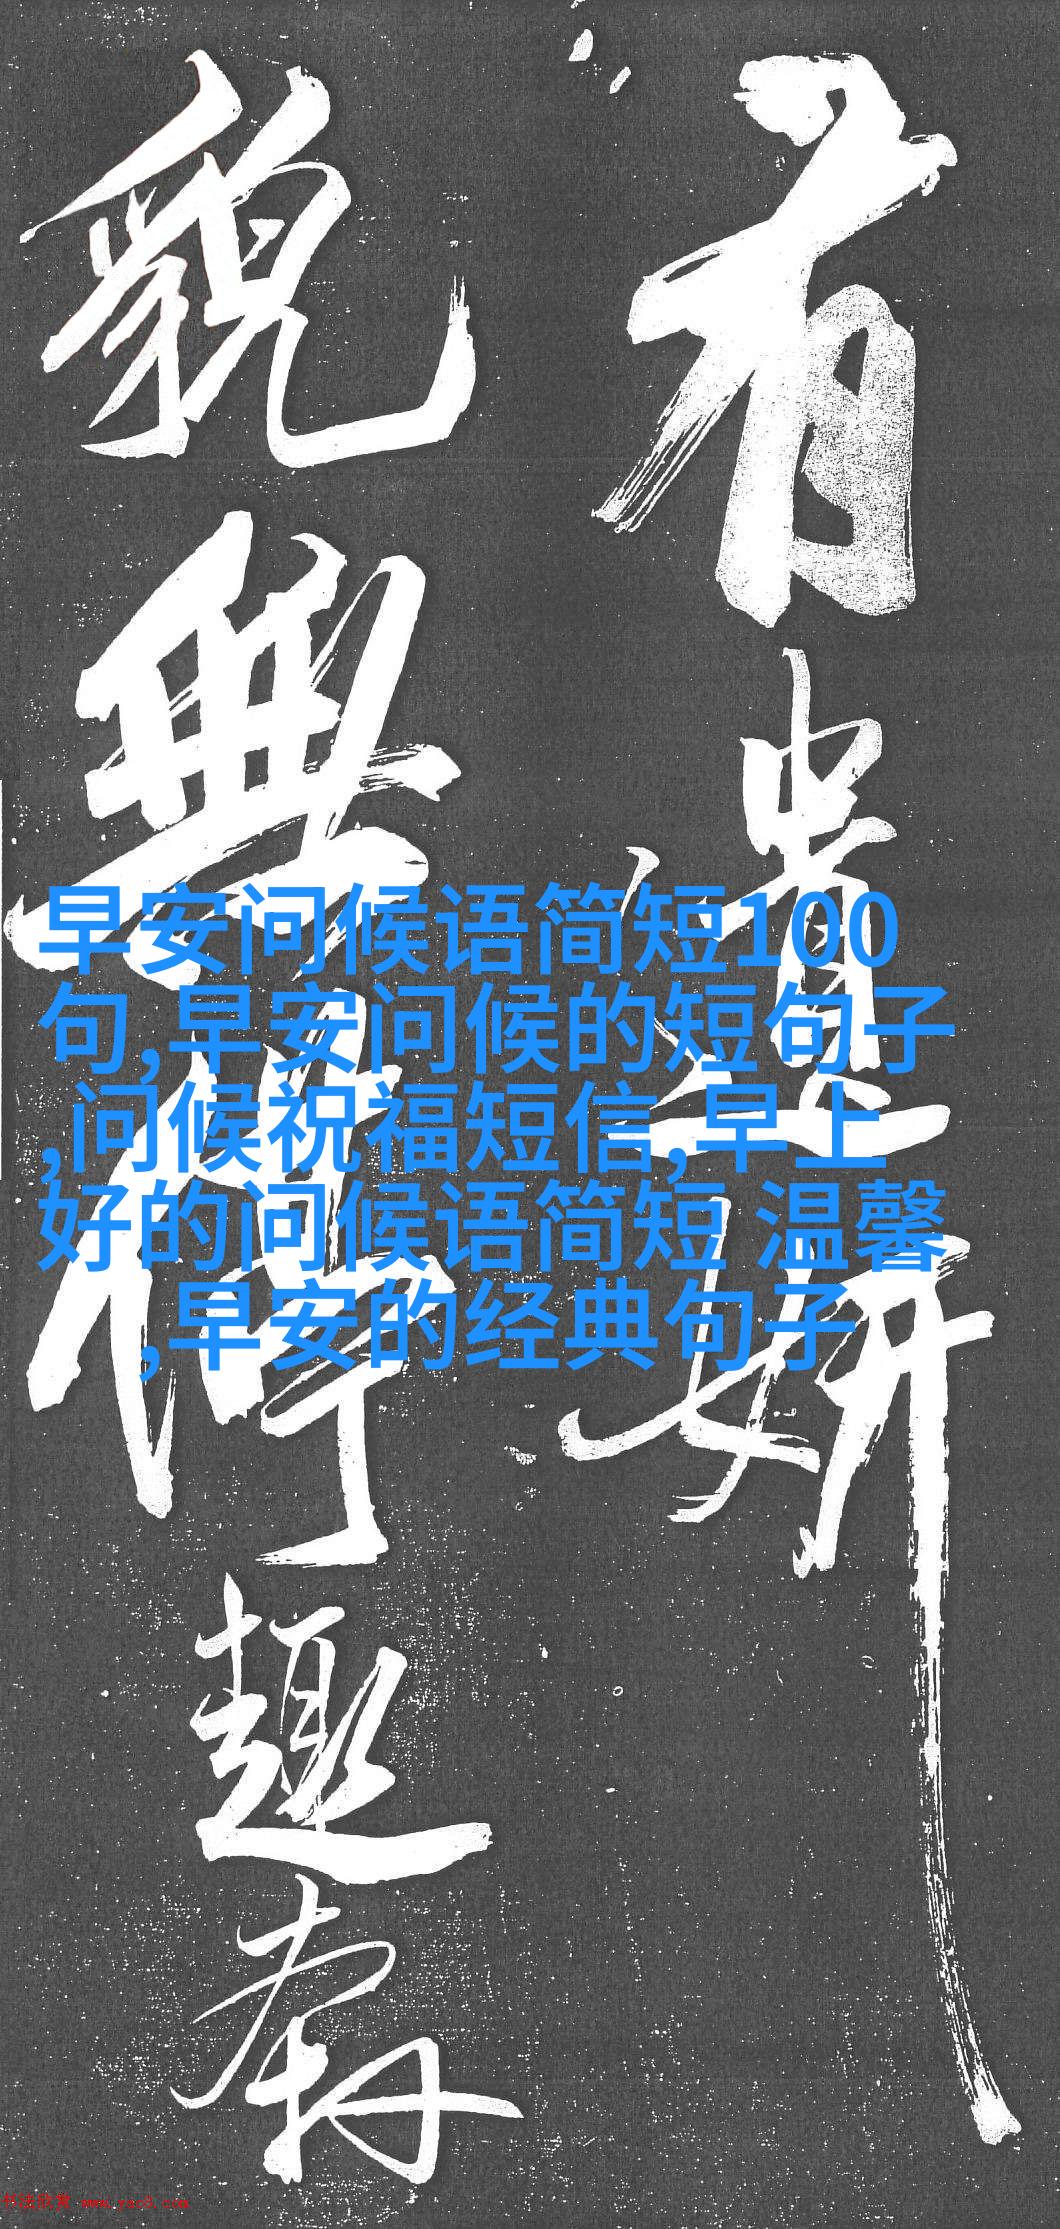 有遺妍
貌無停趣
早安问候语简短100
句,早安问候的短句子
,问候祝福短信,早上
好的问候语简短 温馨
,早安的经典句子
书法欣赏 www.yac8.com